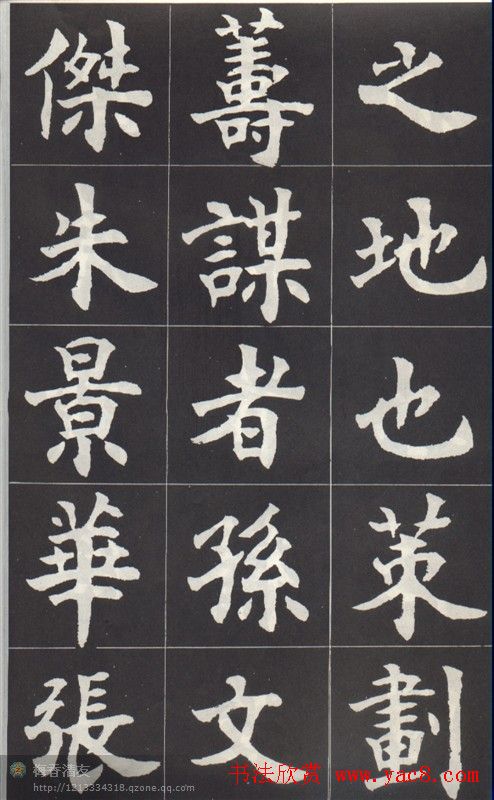 之地也䇿劃
籌謀者孫文
傑朱景華張
梅春清友
http://1213334318.qzone.qq.com
书法欣赏 www.yac8.com